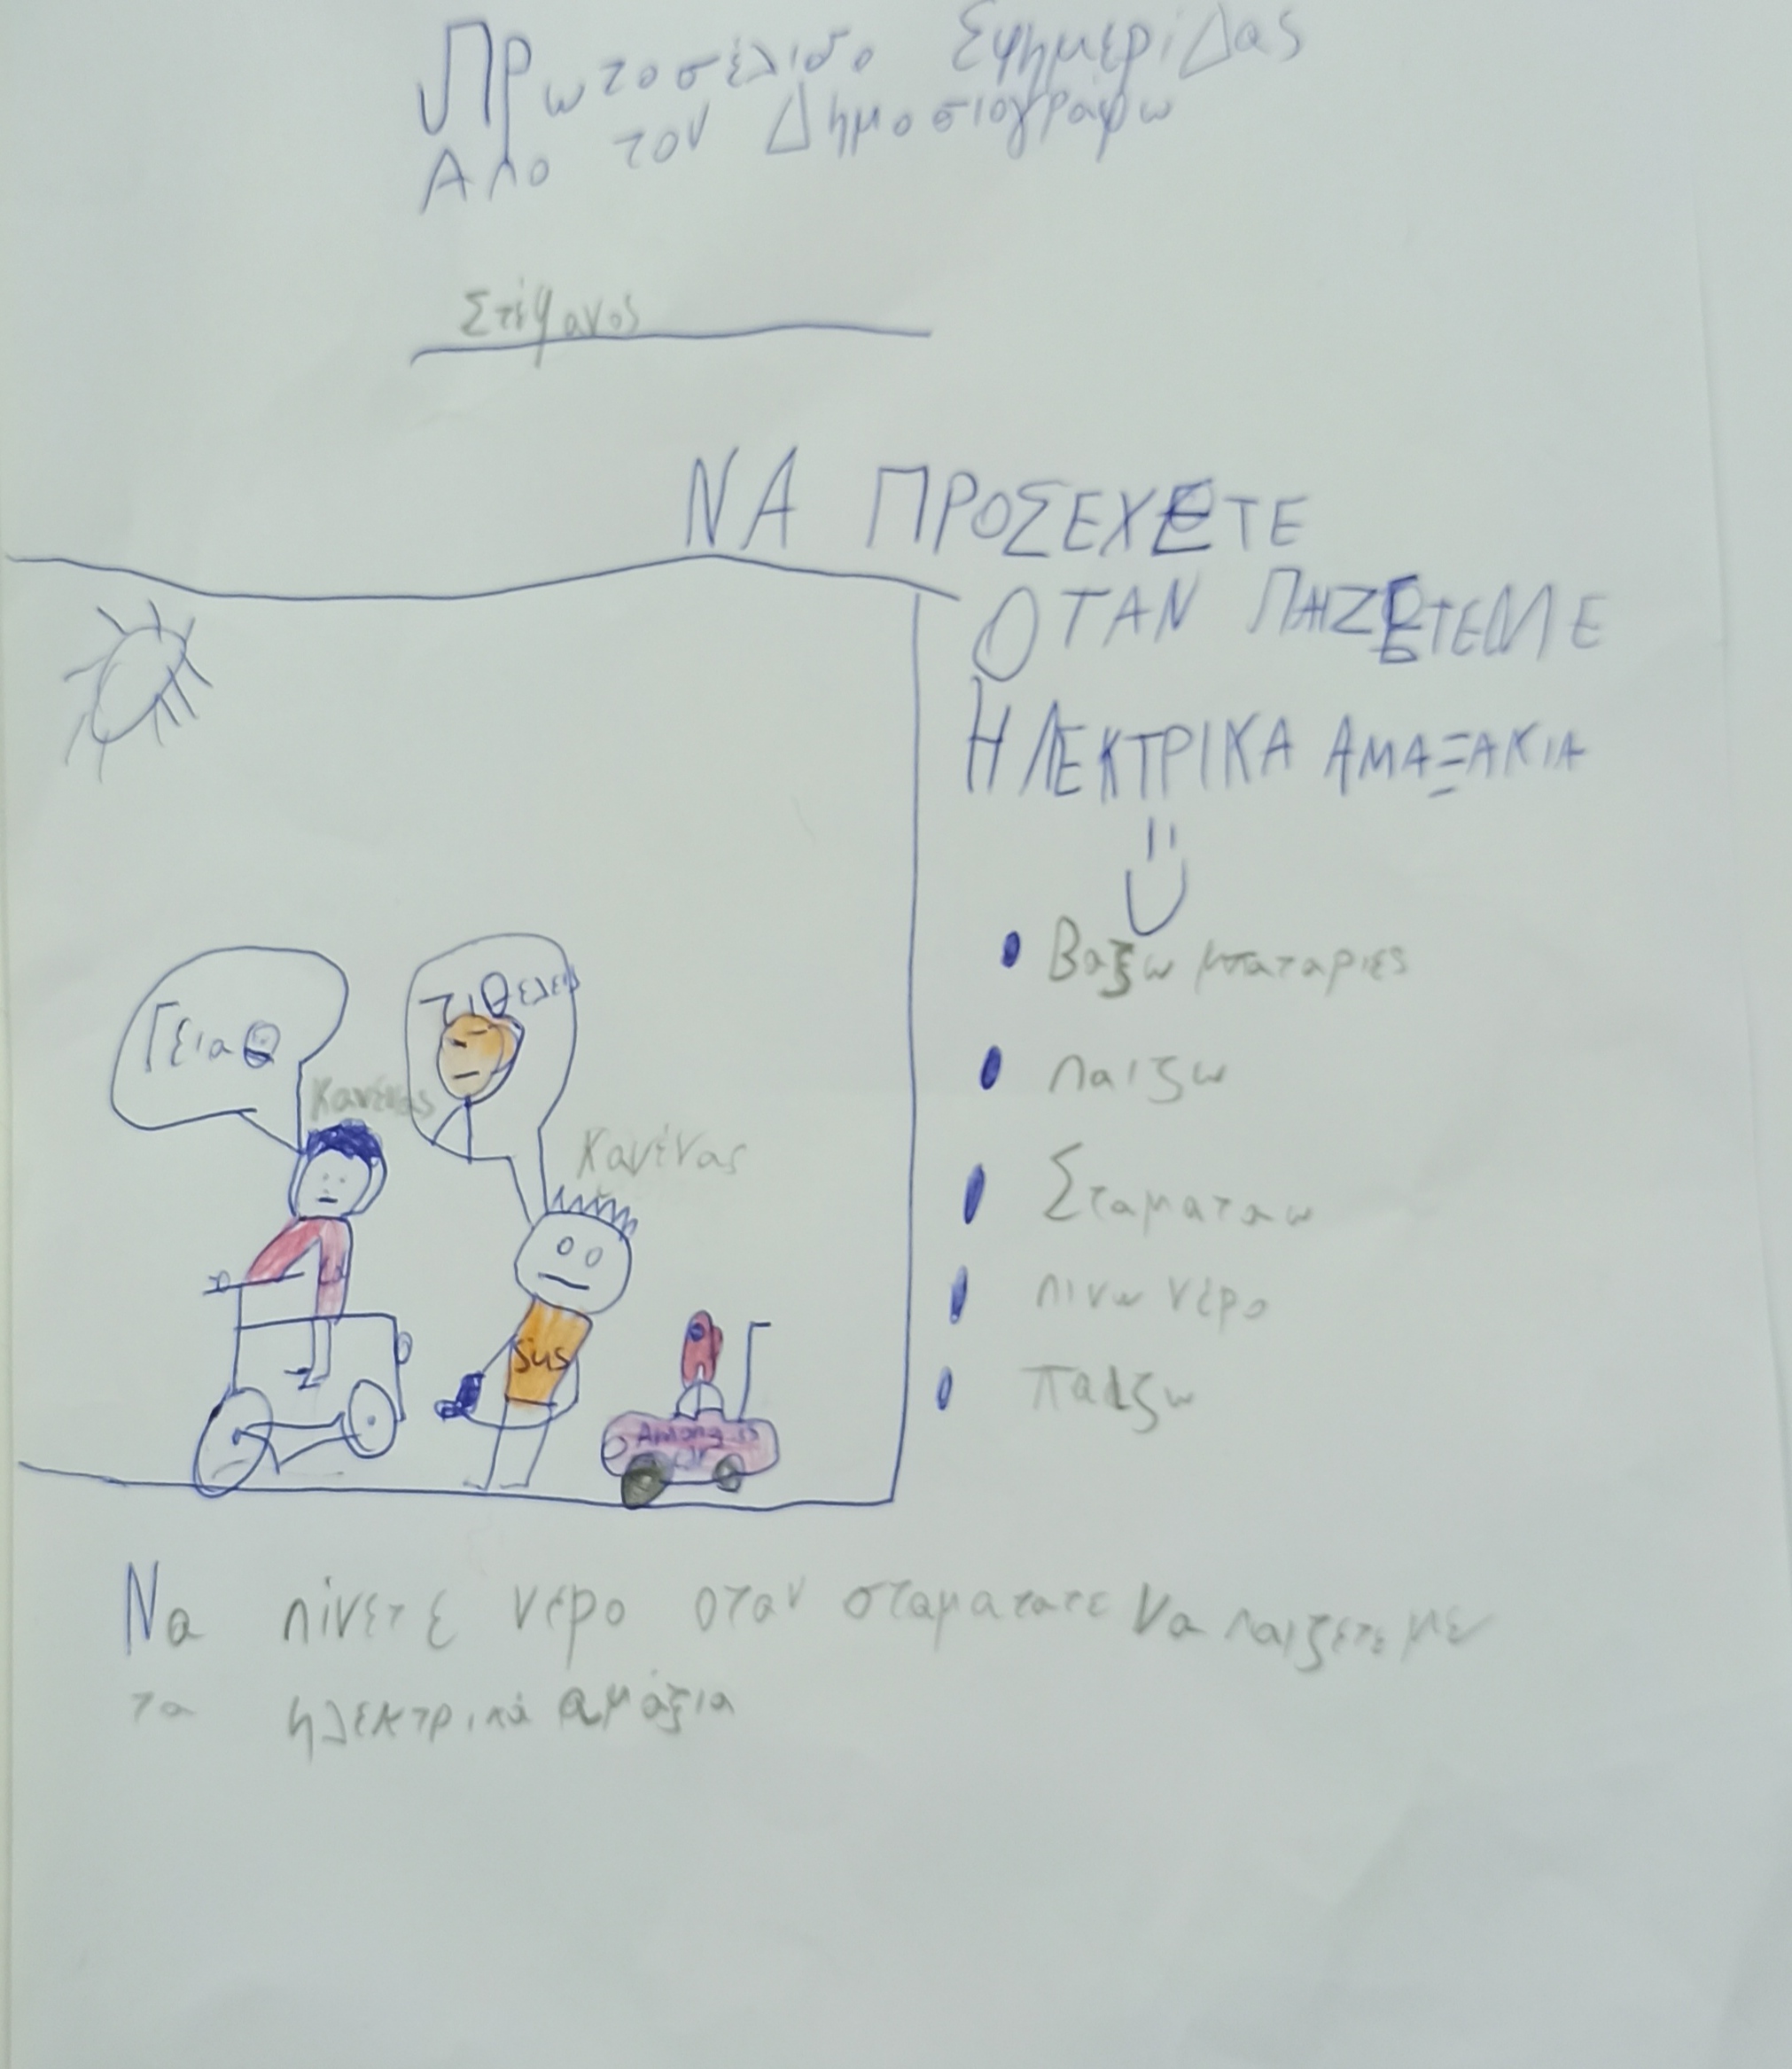 Πρωτοσέλιδο Εφημερίδας
Απο τον Δημοσιογράφω
Στέφανος
ΝΑ ΠΡΟΣΕΧΕΤΕ
ΟΤΑΝ ΠΑΙΖΕΤΕ ΜΕ
ΗΛΕΚΤΡΙΚΑ ΑΜΑΞΑΚΙΑ
Βαζω μπαταριες
παιζω
Σταματαω
πινω νέρο
παιζω
Γεια
Κανένας
Τι θελεις
Κανένας
sus
Among us
Να πίνετε νέρο οταν σταματατε να παιζετε με
τα ηλεκτρικά αμάξια